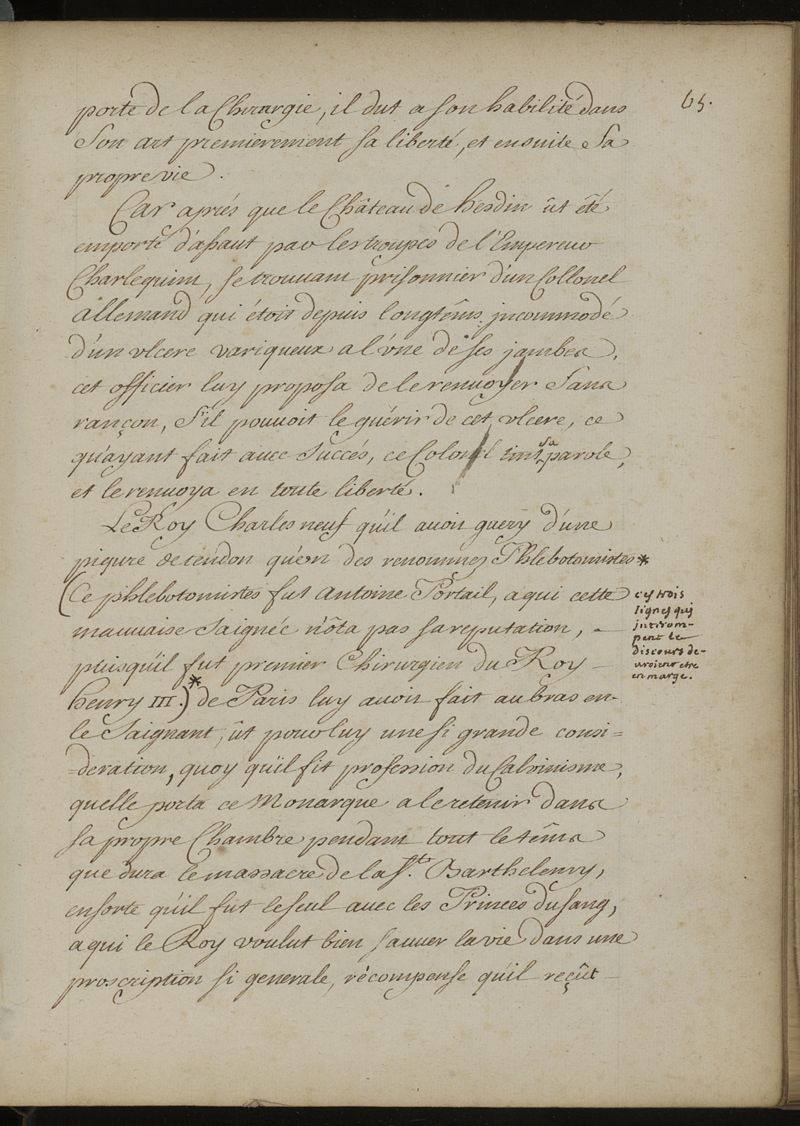 65.
porte de la Chirurgie, il dut a son habilité dans
Son art premierement sa liberté, et ensuite Sa
propre vie.
Car aprés que le Château de hesdin ût êté
emporté d'assaut par les troupes de l'Empereur
Charlequint, se trouvant prisonnier d'un Collonel
allemand qui étoit depuis longtêms jncommodé
d'un vlcere variqueux a l'vne de ses jambes,
cet officier luy proposa de le renuoyer Sans
rançon, S'il pouvoit le guérir de cet vlcere, ce
qu'ayant fait auec Succés, ce Colonel tint sa parole,
et le renuoya en toute liberté.
Le Roy Charles neuf qu'il auoit guery d'une
piqure de tendon qu'un des renommez Phlebotomistes *
(Ce phlebotomistes fut Antoine Portail, a qui cette
mauuaise Saignée n'ôta pas sa reputation,
puisqu'il fut premier Chirurgien du Roy
henry III.)* de Paris luy auoit fait au bras en
le Saignant, ût pour luy une si grande consi=
=deration, quoy qu'il fit profession du Calvinisme,
quelle porta ce Monarque a le retenir dans
sa propre Chambre pendant tout le têms
que dura le massacre de la Ste. Barthelemy,
ensorte qu'il fut le seul auec les Princes du sang,
a qui le Roy voulut bien sauuer la vie dans une
proscription si generale, récompense qu'il reçût
ces trois
lignes qui
jnterrom-
pent le
discours de-
uroient etre
en marge.